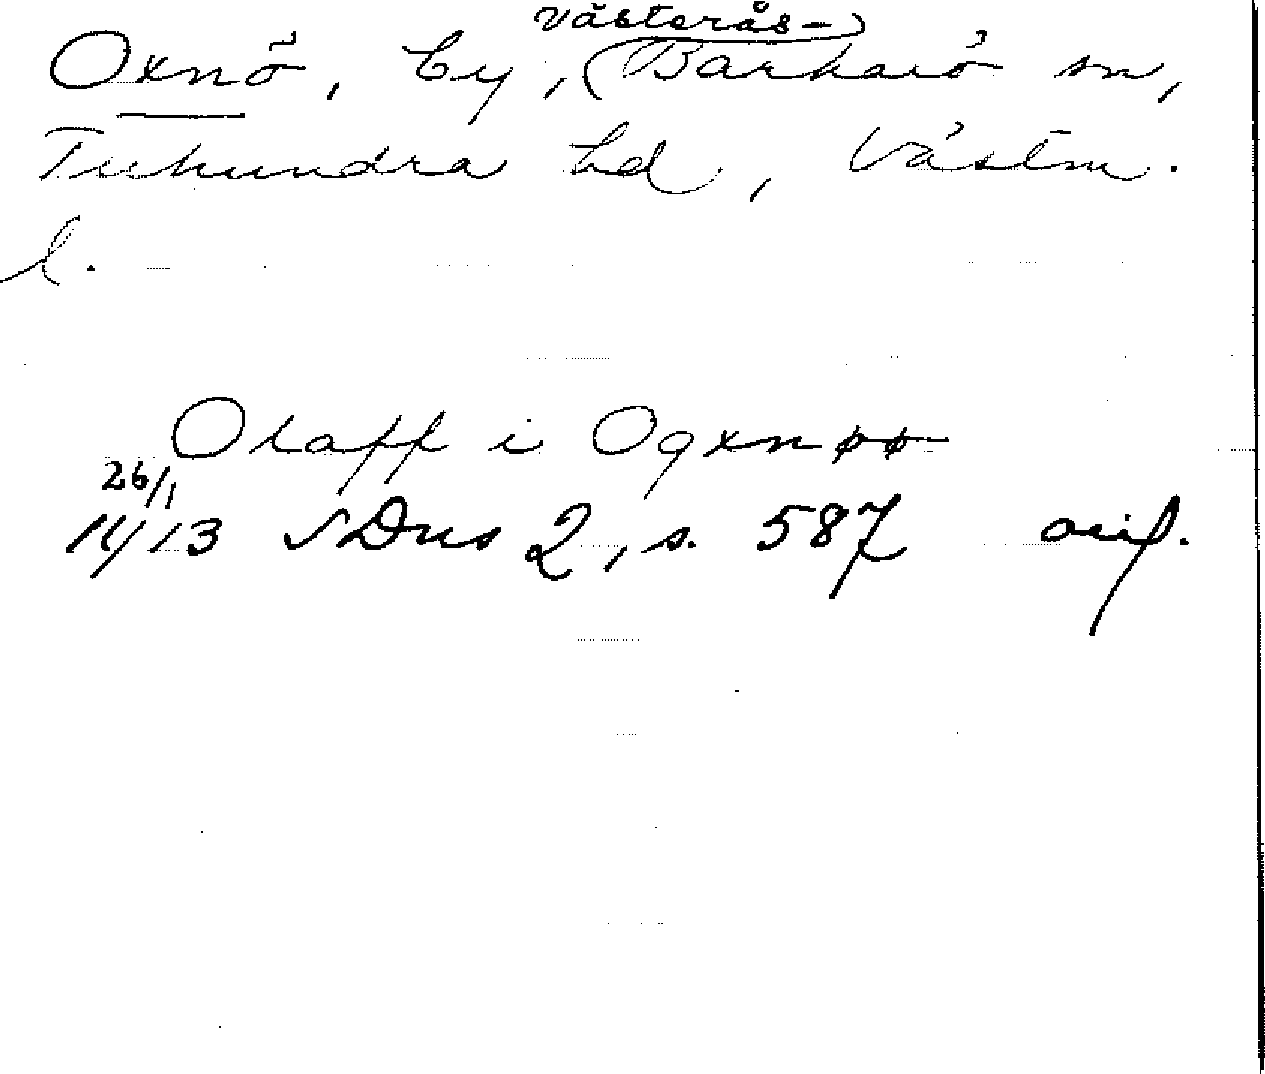 Västerås-
Oxnö, by, Barkarö sn,
Tuhundra hd, Västm.
l.
Olaff i Ogxnøø
26/1
1413 SDns 2, s. 587 orig.